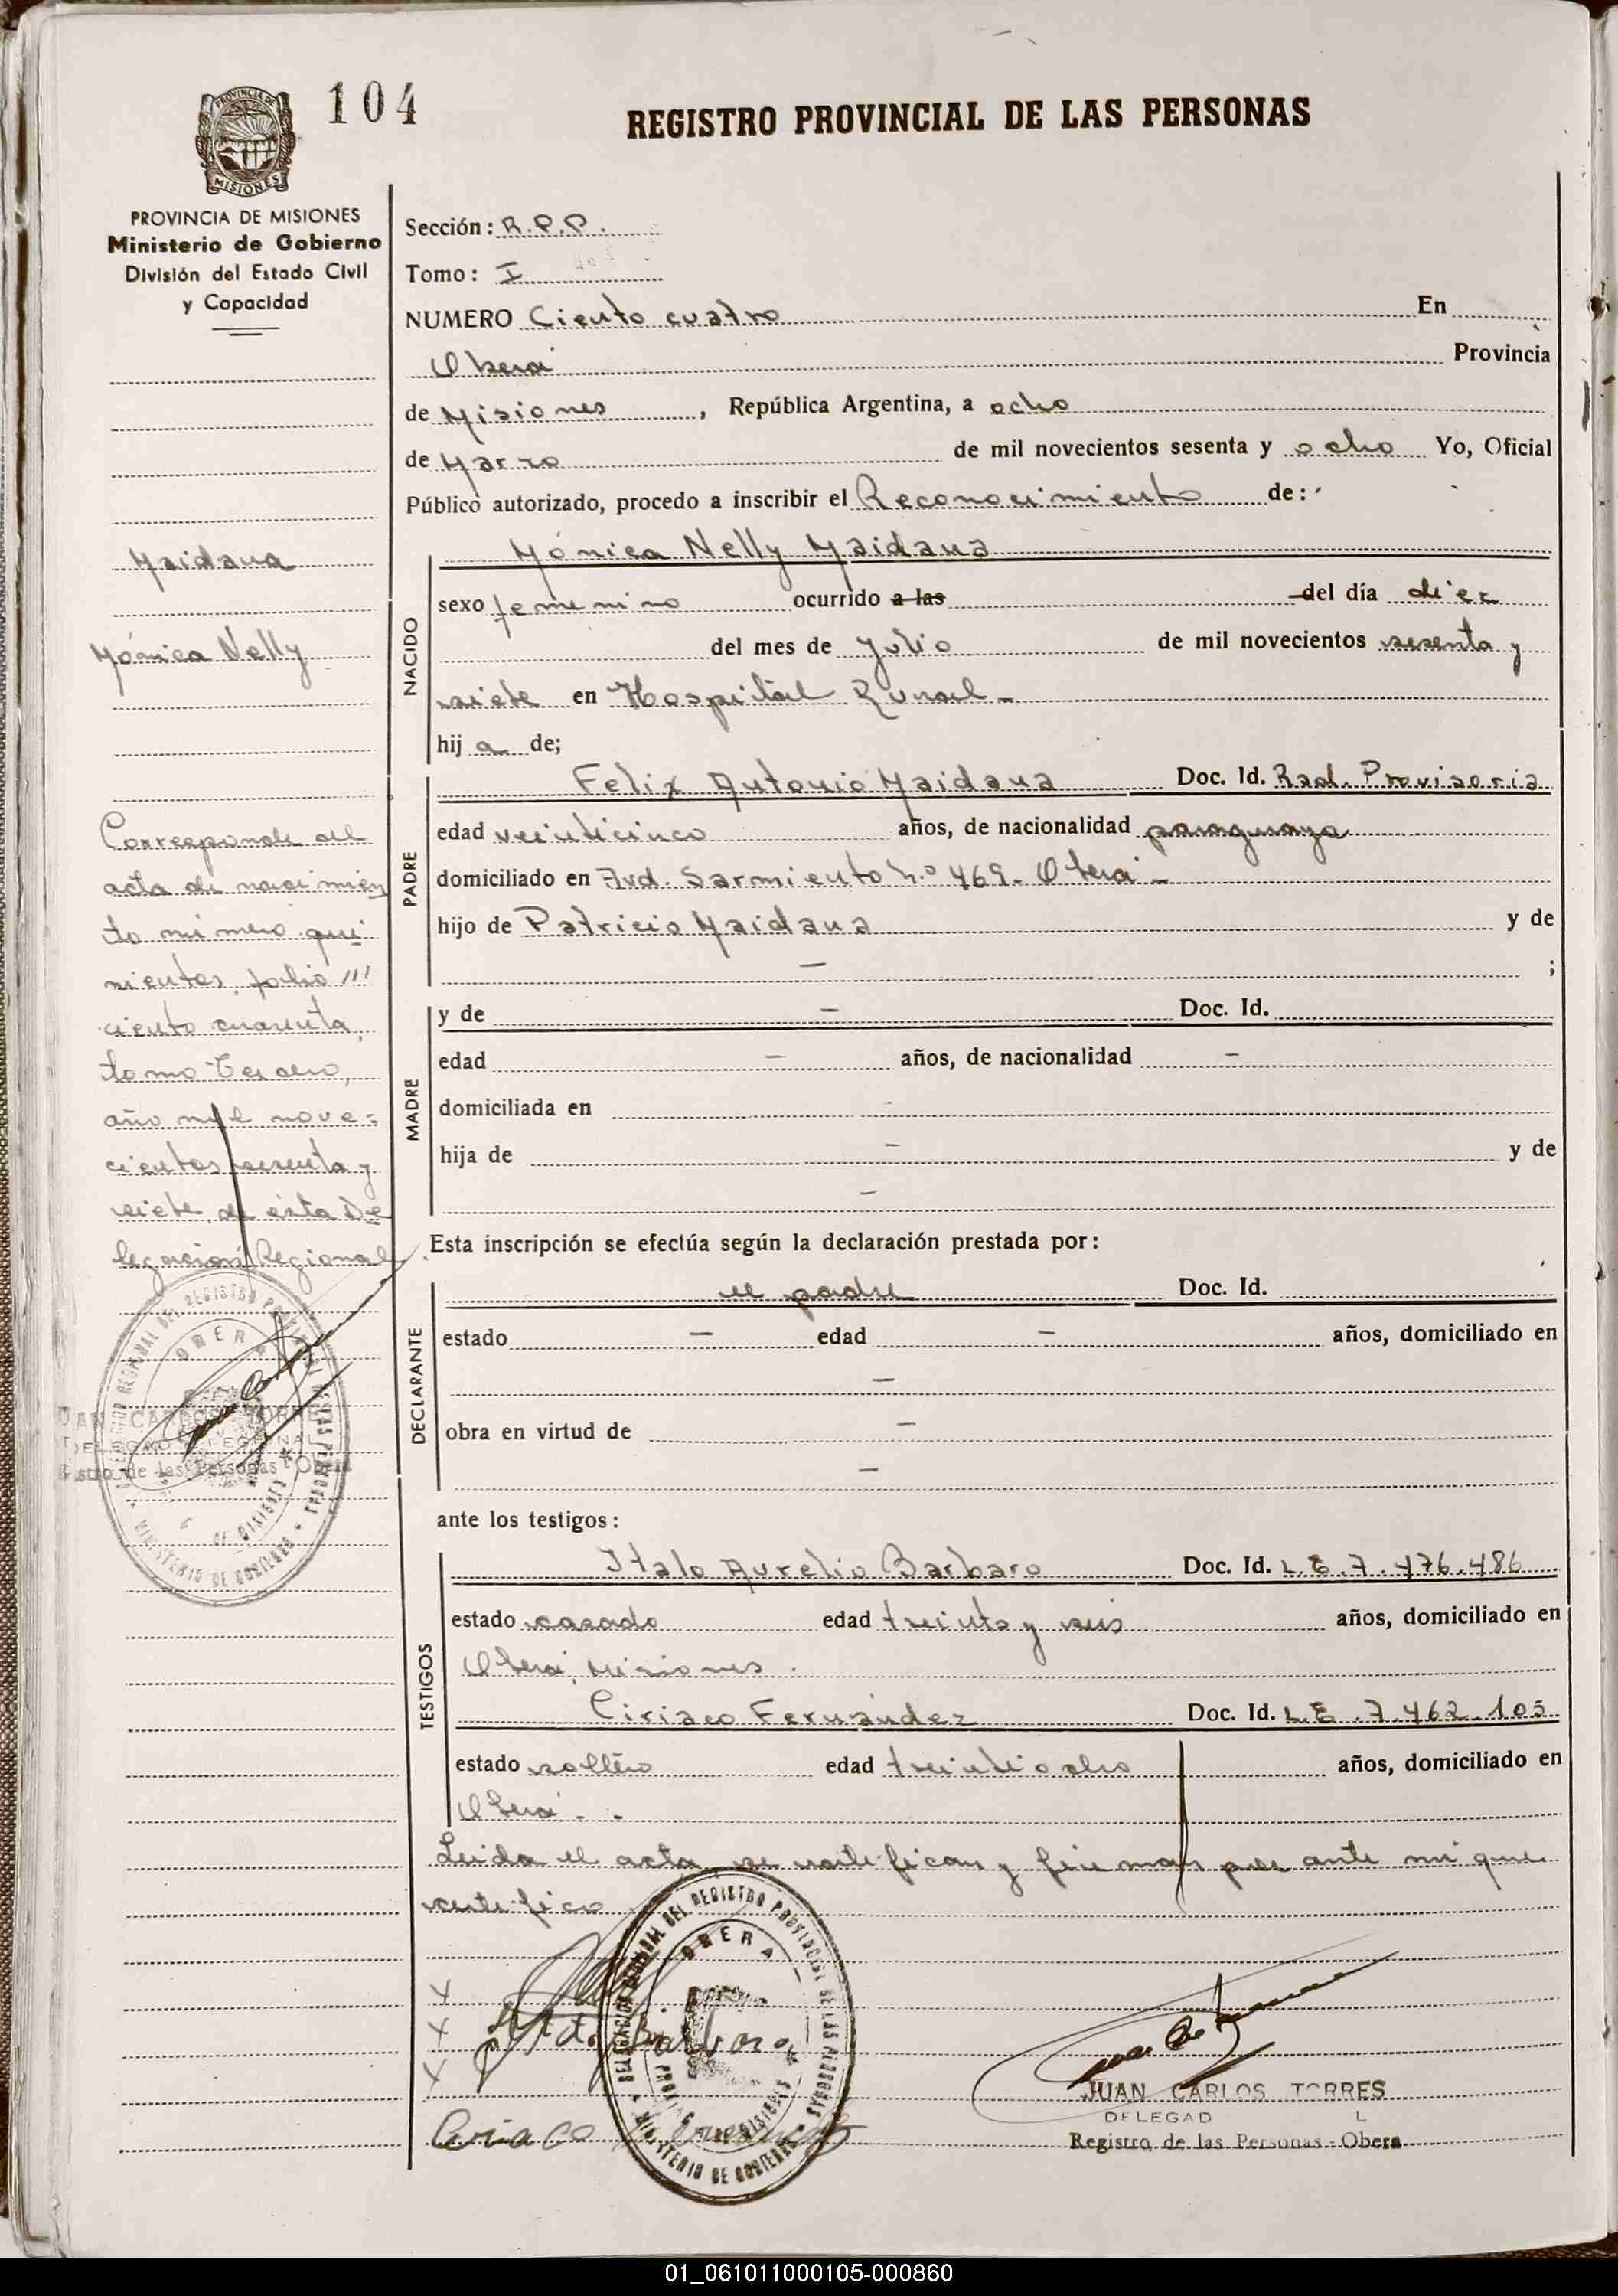 104
REGISTRO PROVINCIAL DE LAS PERSONAS
PROVINCIA DE
MISIONES
PROVINCIA DE MISIONES
Ministerio de Gobierno
División del Estado Civil
y Capacidad
Sección: R.P.P.
Tomo: I
NUMERO Ciento cuatro En
Oberá Provincia
de Misiones, República Argentina, a ocho
de Marzo de mil novecientos sesenta y ocho Yo, Oficial
Público autorizado, procedo a inscribir el Reconocimiento de:
Maidana
Mónica Nelly
NACIDO
Mónica Nelly Maidana
sexo femenino ocurrido a las del día diez
del mes de Julio de mil novecientos sesenta y
siete en Hospital Rural -
hij a de;
PADRE
Felix Antonio Maidana Doc. Id. Rad. Provisoria
edad veinticinco años, de nacionalidad paraguaya
domiciliado en Avd. Sarmiento N.º 469 - Oberá -
hijo de Patricio Maidana y de
— ;
MADRE
y de — Doc. Id.
edad — años, de nacionalidad —
domiciliada en -
hija de — y de
—
Corresponde al
acta de nacimien
to número qui
nientos, folio ///
ciento cuarenta,
tomo Tercero,
año mil nove-
cientos sesenta y
siete, de ésta De
legación Regional
Esta inscripción se efectúa según la declaración prestada por:
DECLARANTE
el padre Doc. Id.
estado — edad — años, domiciliado en
—
obra en virtud de —
—
DELEGACION REGIONAL DEL REGISTRO PROVINCIAL DE LAS PERSONAS
OBERA
MINISTERIO DE GOBIERNO
JUAN CARLOS TORRES
DELEGADO REGIONAL
Registro de las Personas - Oberá
ante los testigos:
TESTIGOS
Italo Aurelio Barbaro Doc. Id. L.E. 7.476.486
estado casado edad treinta y seis años, domiciliado en
Oberá, Misiones.
Ciriaco Fernández Doc. Id. L.E. 7.462.105
estado soltero edad treintiocho años, domiciliado en
Oberá - .
Leida el acta, se ratifican y firman por ante mi que
certifico
X
X
X
Ciriaco
DELEGACION REGIONAL DEL REGISTRO PROVINCIAL DE LAS PERSONAS
OBERA
MINISTERIO DE GOBIERNO
JUAN CARLOS TORRES
DELEGAD L
Registro de las Personas - Oberá
01_061011000105-000860